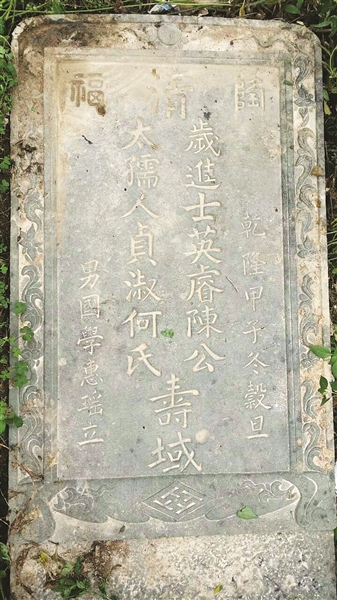 福
乾隆甲子冬穀旦
歲進士英睿陳公
太孺人貞淑何氏
壽域
男國學惠瑤立